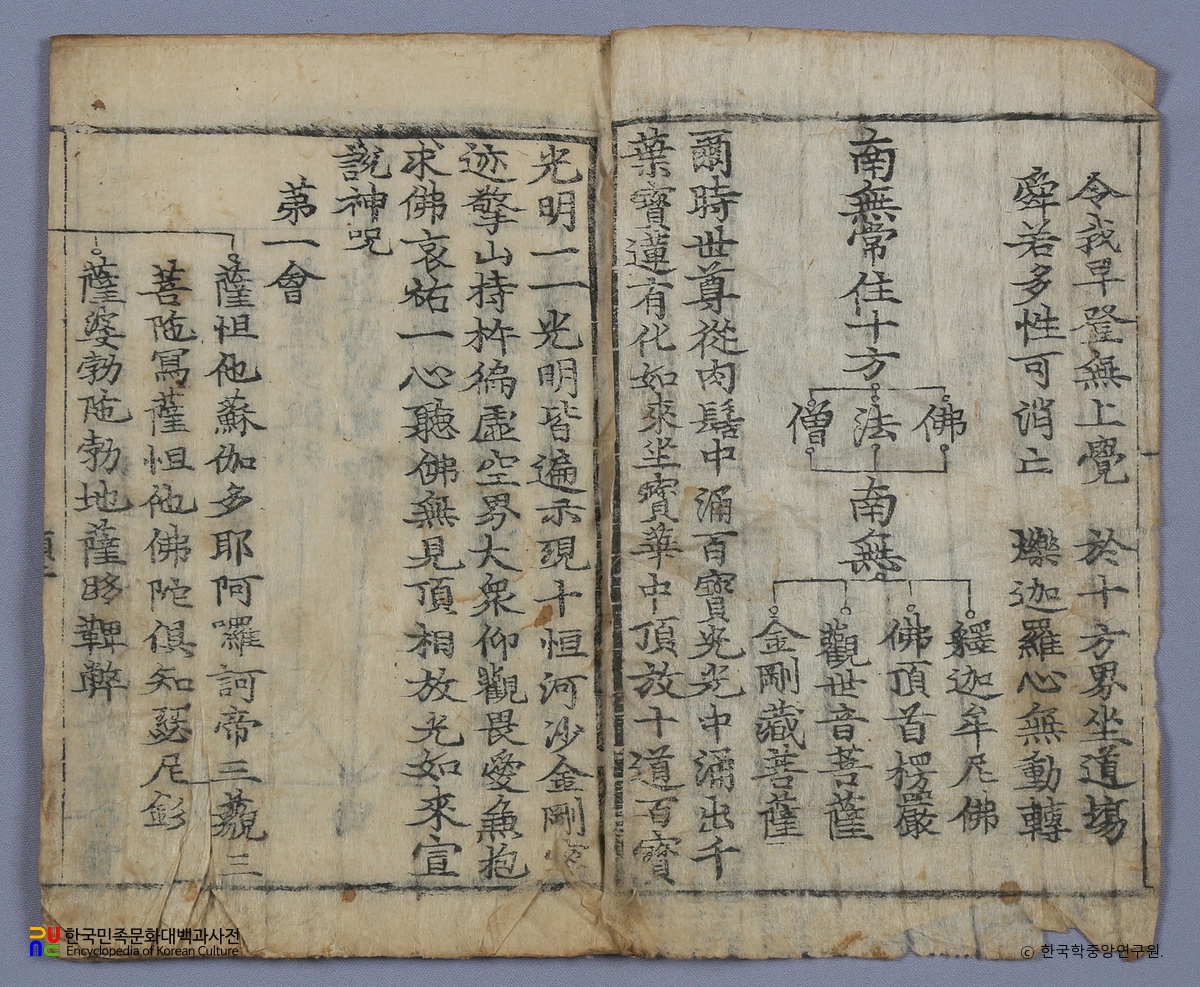 令我早登無上覺 於十方界坐道場
舜若多性可消亡 爍迦羅心無動轉
南無常住十方
佛
法
僧
南無
釋迦牟尼佛
佛頂首楞嚴
觀世音菩薩
金剛藏菩薩
爾時世尊從肉髻中涌百寶光光中涌出千
葉寶蓮有化如來坐寶華中頂放十道百寶
光明一一光明皆遍示現十恒河沙金剛密
迹擎山持杵徧虛空界大衆仰觀畏愛兼抱
求佛哀祐一心聽佛無見頂相放光如來宣
說神呪
苐一會
薩怛他蘇伽多耶阿囉訶帝三藐三
菩陁寫薩怛他佛陀俱知瑟尼釤
薩婆勃陁勃地薩跢鞞弊
한국민족문화대백과사전
Encyclopedia of Korean Culture
ⓒ 한국학중앙연구원.